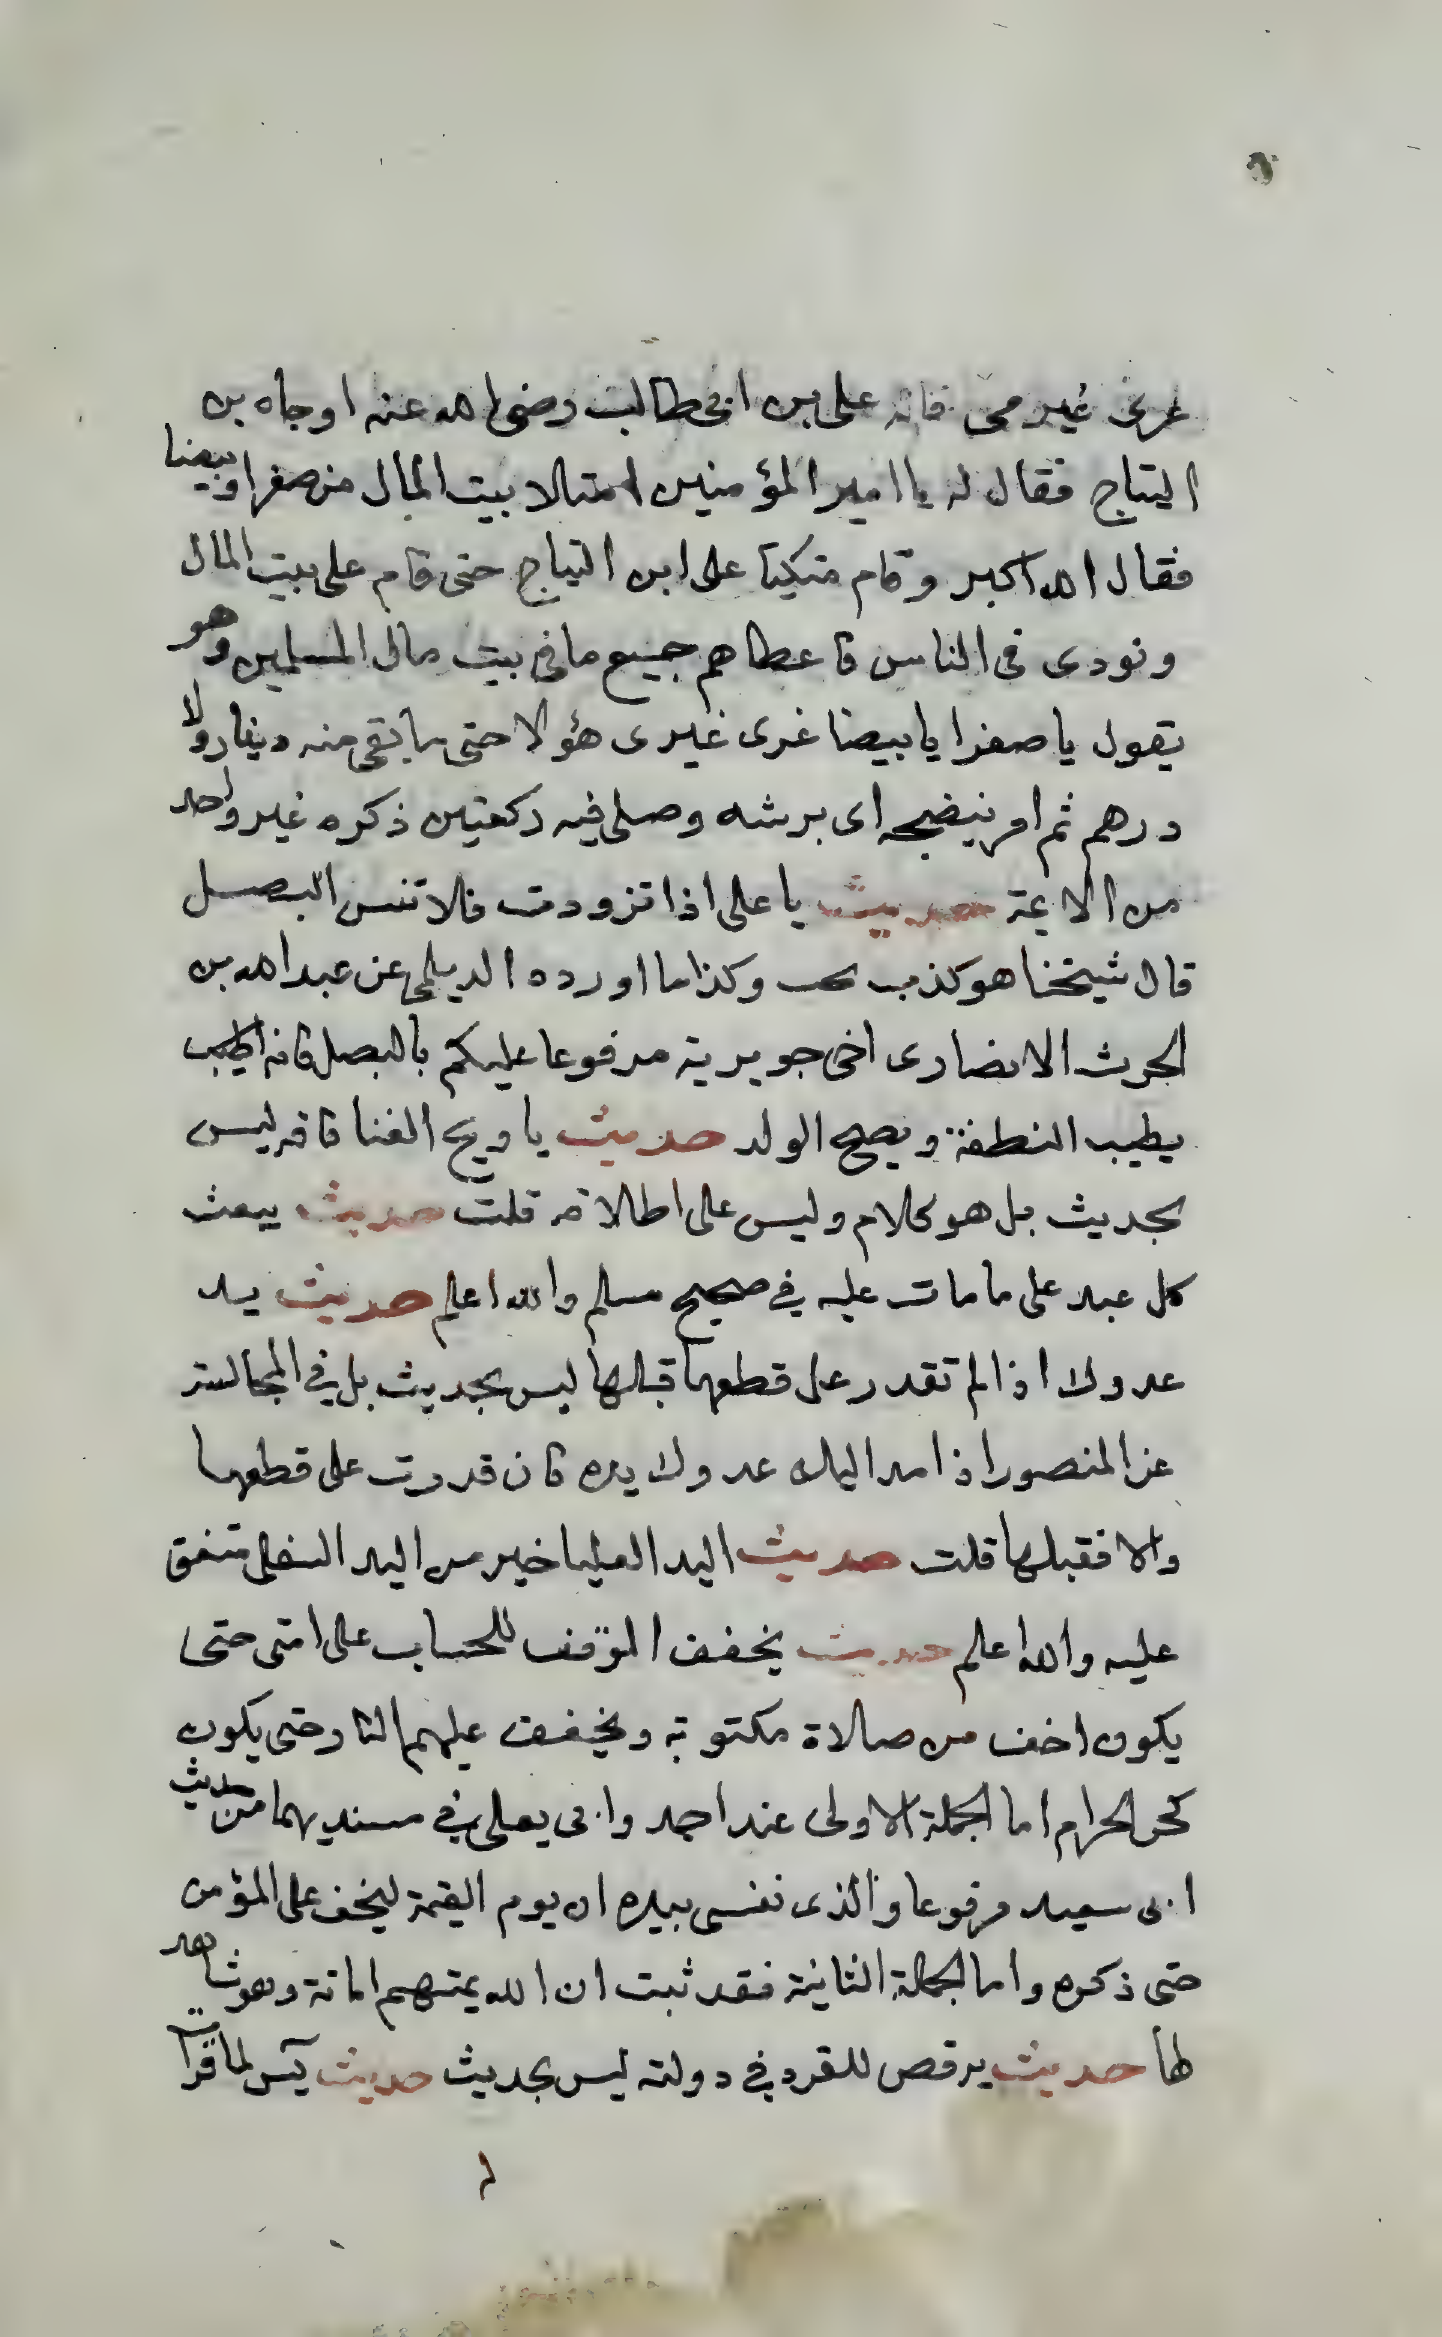 غرى غيرى قاله على بن ابى طالب رضى الله عنه اوجاه بن
التياج فقال له يا امير المؤمنين امتلا بيت المال من صفرا وبيضا
فقال الله اكبر وقام متكيا على ابن التياج حتى قام على بيت المال
ونودى فى الناس فاعطاهم جميع ما فى بيت مال المسلمين وهو
يقول يا صفرا يا بيضا غرى غيرى هؤلا حتى ما بقى منه دينار ولا
درهم ثم امر بنضحه اى برشه وصلى فيه ركعتين ذكره غير واحد
من الائمة حديث يا على اذا تزودت فلا تنس البصل
قال شيخنا هو كذب بحت وكذا ما اورده الديلمى عن عبد الله بن
الحرث الانصارى اخى جويرية مرفوعا عليكم بالبصل فانه اطيب
يطيب النطفة ويصح الولد حديث يا ويح الغنا فانه ليس
بحديث بل هو كلام وليس على اطلاقه قلت حديث يبعث
كل عبد على ما مات عليه في صحيح مسلم والله اعلم حديث يد
عدوك اذا لم تقدر على قطعها قبلها ليس بحديث بل في المجالسة
عن المنصور اذا مد اليك عدوك يده فان قدرت على قطعها
والا فقبلها قلت حديث اليد العليا خير من اليد السفلى متفق
عليه والله اعلم حديث يخفف الموقف للحساب على امتى حتى
يكون اخف من صلاة مكتوبة ويخفف عليهم النار حتى يكون
كحر الحرام اما الجملة الاولى عند احمد وابى يعلى في مسنديهما من حديث
ابى سعيد مرفوعا والذى نفسى بيده ان يوم القيمة ليخف على المؤمن
حتى ذكره واما الجملة الثانية فقد ثبت ان الله يميتهم اماتة وهو شاهد
لها حديث يرقص للقرد في دولته ليس بحديث حديث يس لما قرات